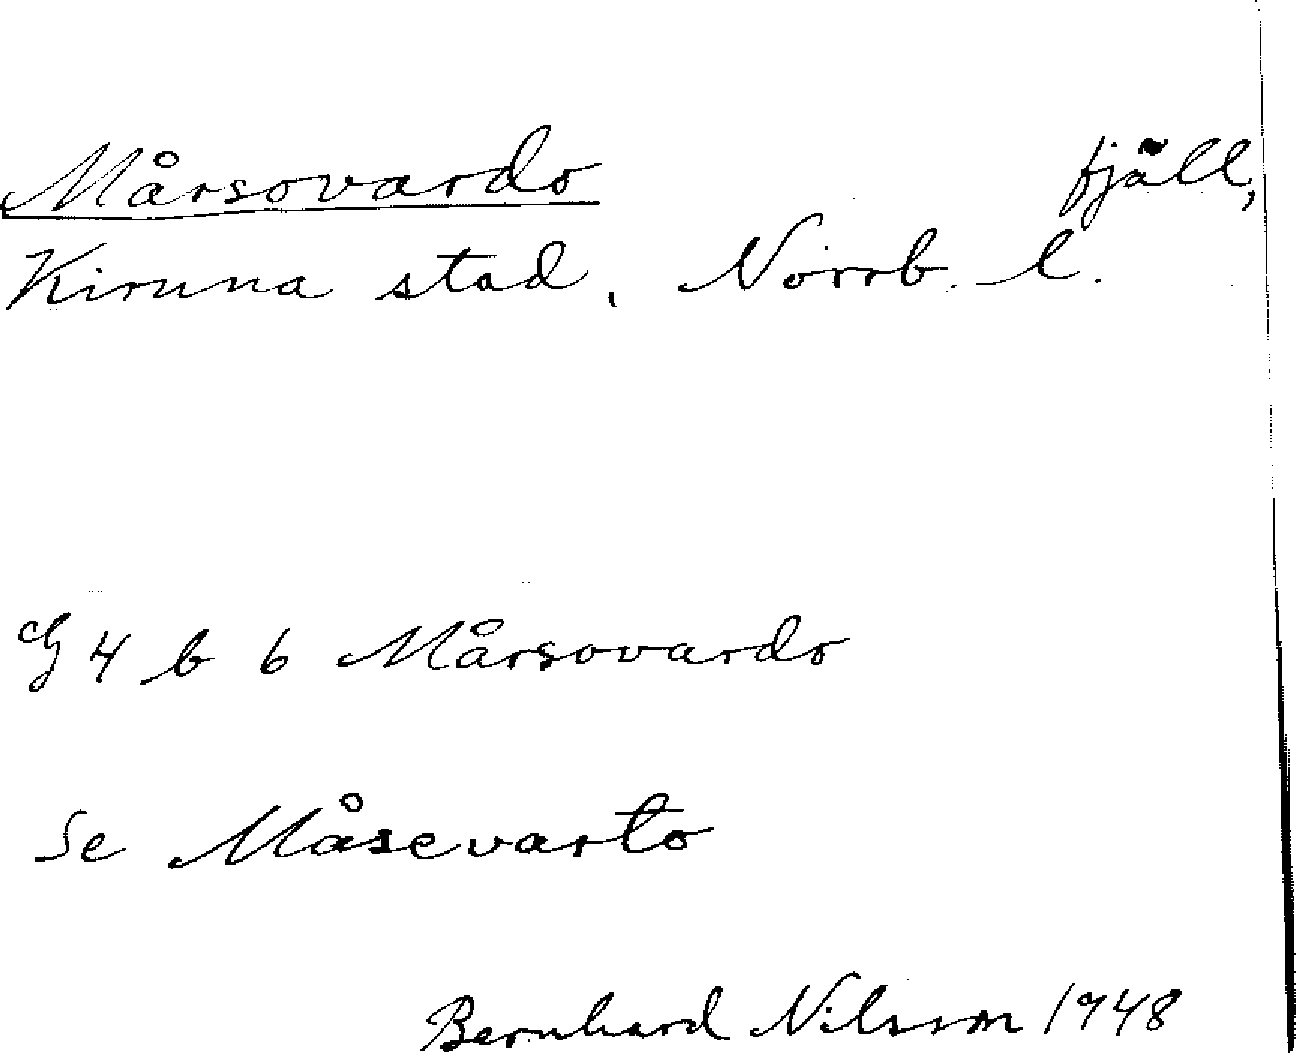 Mårsovardo fjäll,
Kiruna stad, Norrb. l.
G 4 b 6 Mårsovardo
Se Måsevarto
Bernhard Nilsson 1948